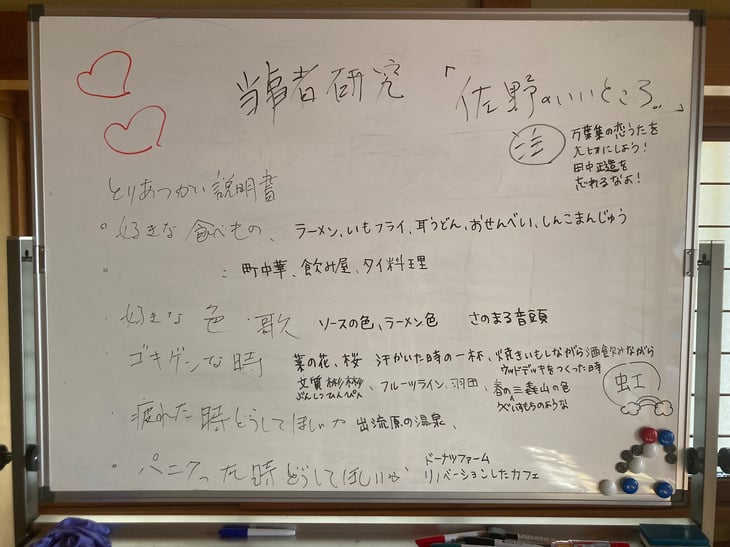 当事者研究 「佐野のいいところ。」
注 万葉集の恋うたを
大切にしよう!
田中正造を
忘れるなよ!
とりあつかい説明書
・好きな食べもの、 ラーメン、いもフライ、耳うどん、おせんべい、しんこまんじゅう
: 町中華、飲み屋、タイ料理
・好きな色・歌 ソースの色、ラーメン色 さのまる音頭
・ゴキゲンな時 菜の花、桜 汗かいた時の一杯、焼きいもしながら酒飲みながら
ウッドデッキをつくった時
文質彬彬、フルーツライン、羽田、春の三毳山の色 虹
ぶんしつひんぴん べにはもちのような
・疲れた時どうしてほしいか 出流原の温泉、
・パニクった時どうしてほしいか ドーナツファーム
リノベーションしたカフェ